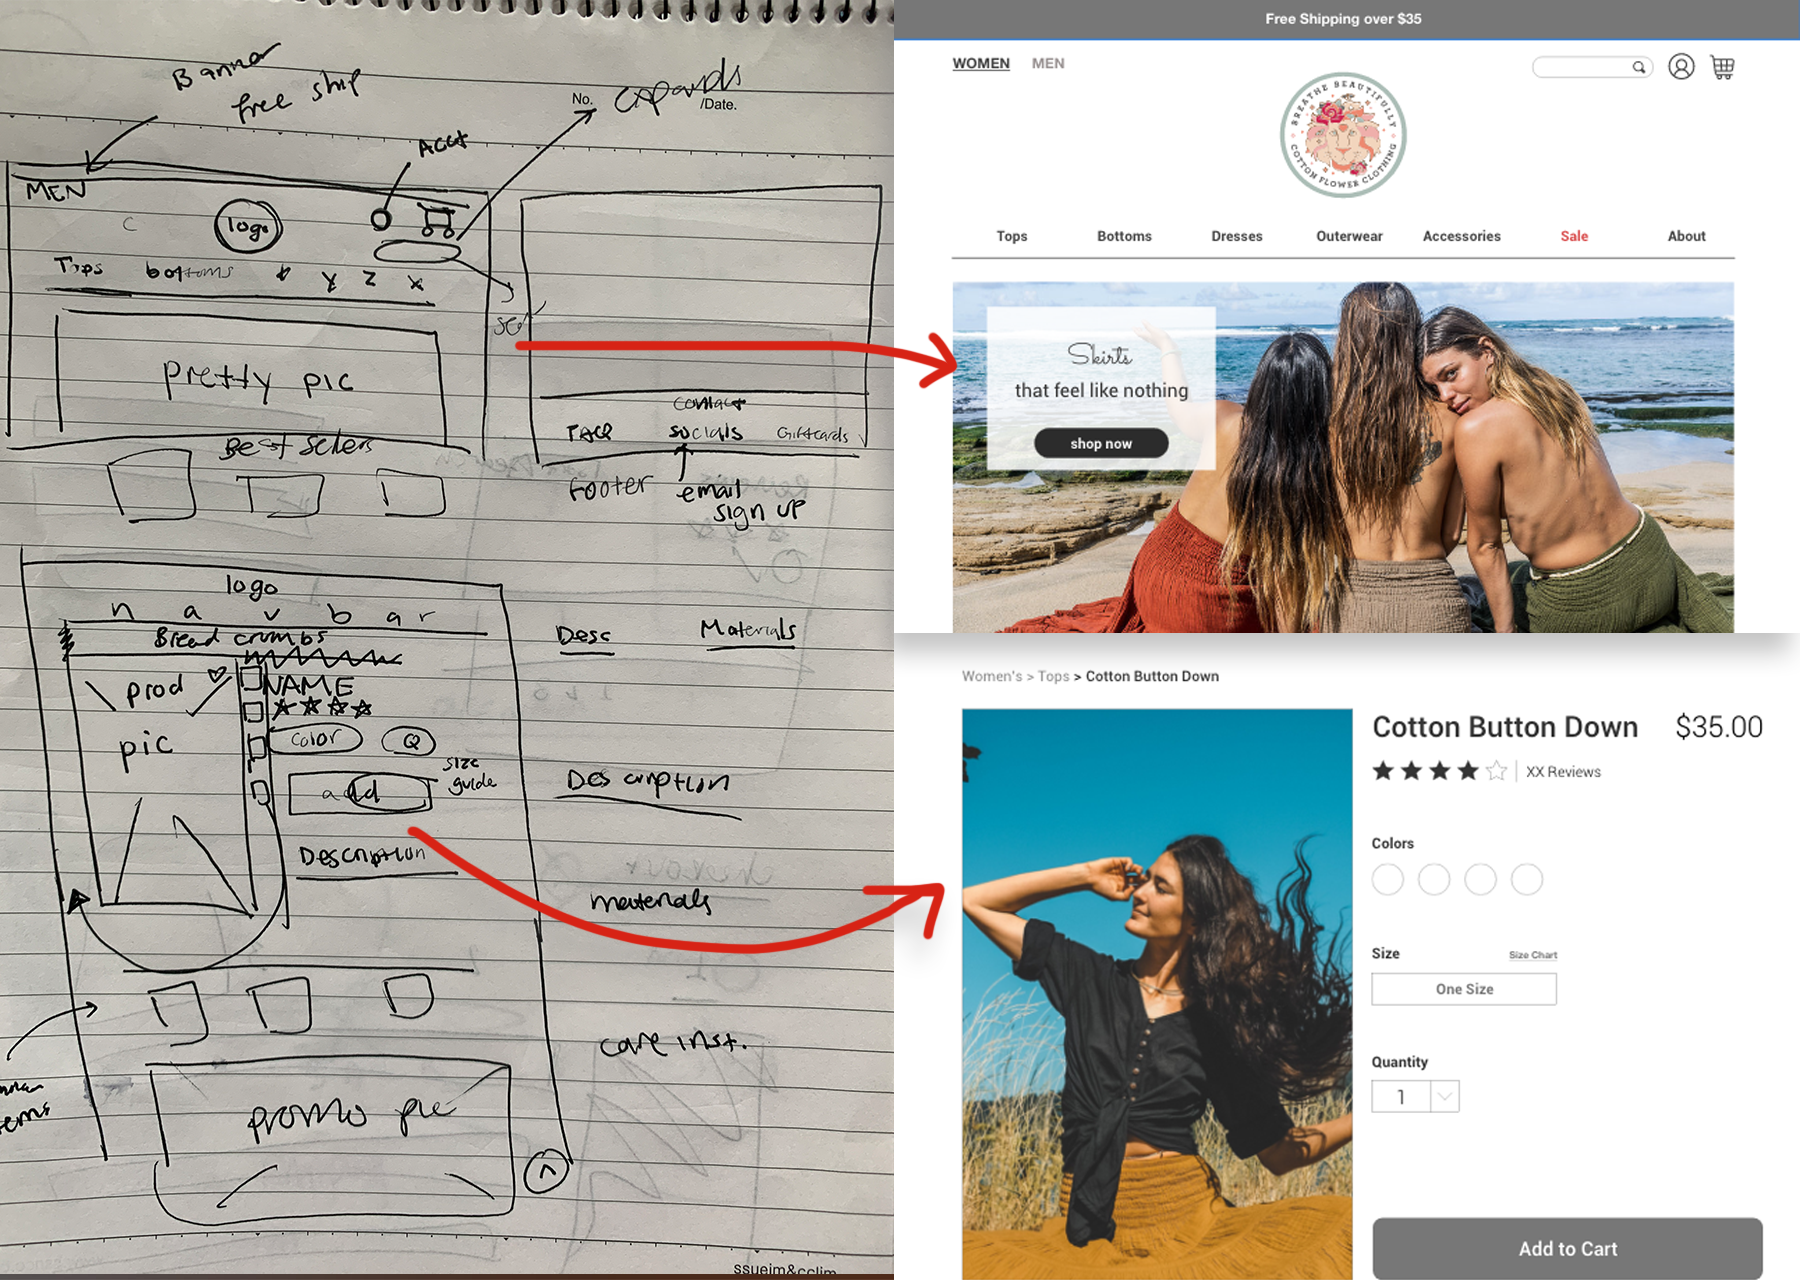 Banner
free ship
No.
/Date.
expands
Acct
MEN
logo
Tops bottoms
Y Z X
pretty pic
Best Sellers
contact
FAQ socials Giftcards
Footer email
sign up
logo
n a v b a r
Bread crumbs
prod
pic
NAME
color Q
size
guide
add
Description
Desc Materials
Description
materials
care inst.
promo pic
Free Shipping over $35
WOMEN MEN
BREATHE BEAUTIFULLY
COTTON FLOWER CLOTHING
Tops Bottoms Dresses Outerwear Accessories Sale About
Skirts
that feel like nothing
shop now
Women's > Tops > Cotton Button Down
Cotton Button Down $35.00
XX Reviews
Colors
Size Size Chart
One Size
Quantity
1
Add to Cart